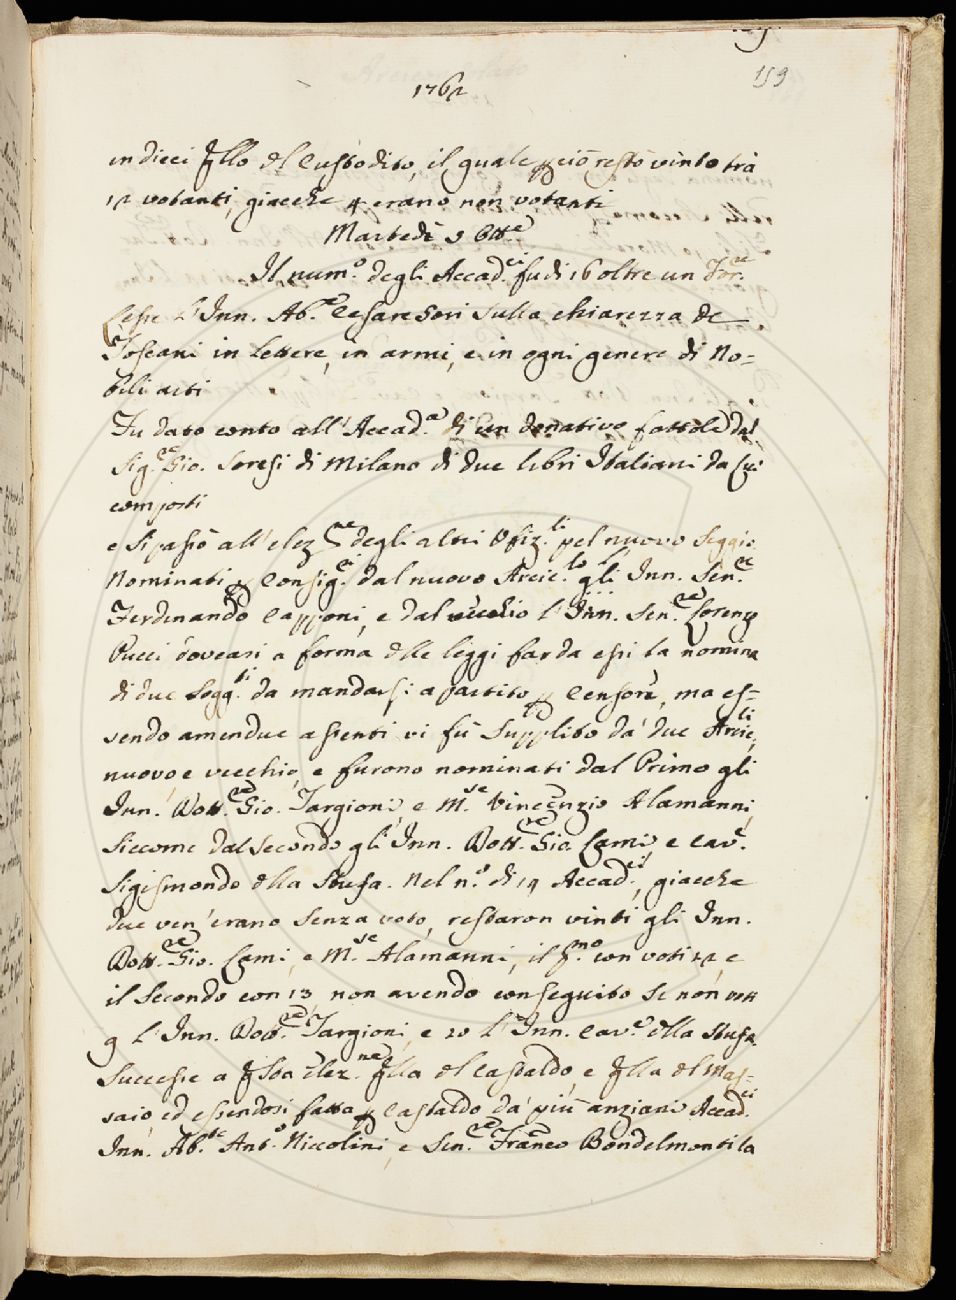 159
1762
in dieci qllo del Custodito, il quale p ciò restò vinto trà
12 votanti, giacche 4 erano non votanti
Martedì 9 Obtt.e
Il num.o degli Accad.ci fu di 16 oltre un For.re
Lesse l'Inn. Ab.e Cesare Sori sulla chiarezza de
Toscani in Lettere, in armi, e in ogni genere di No-
bili arti
Fu dato conto all'Accad.a di un donativo fattole dal
Sig.re Gio. Soresi di Milano di due libri Italiani da lui
composti
e si passò all'elez.ne degli altri Ofiz.li pel nuovo Seggio
Nominati p Consig.ri dal nuovo Arcic.lo gli Inn. Sen.re
Ferdinando Capponi, e dal vecchio l'Inn. Sen.re Lorenzo
Pucci doveasi a forma dlle leggi far da essi la nomina
di due Sogg.ti da mandarsi a partito p Censori, ma es-
sendo amendue assenti vi fù supplito da due Arcic.li
nuovo e vecchio, e furono nominati dal Primo gli
Inn. Dott.re Gio. Targioni, e M.se Vincenzio Alamanni,
siccome dal secondo gli Inn. Dott.re Gio. Lami, e Cav.e
Sigismondo dlla Stufa. Nel n.o di 19 Accad.ci, giacche
due ven'erano senza voto, restaron vinti gli Inn.
Dott.re Gio. Lami, e M.se Alamanni, il p.mo con voti 12, e
il secondo con 13, non avendo conseguito se non voti
9 l'Inn. Dott.re Targioni, e 10 l'Inn. Cav.e dlla Stufa.
Successe a qsta elez.ne qlla del Castaldo, e qlla del Mas-
saio, ed essendosi fatta p Castaldo da più anziani Accad.ci
Inn. Ab.te Ant.o Niccolini, e Sen.re Franco Bondelmonti la